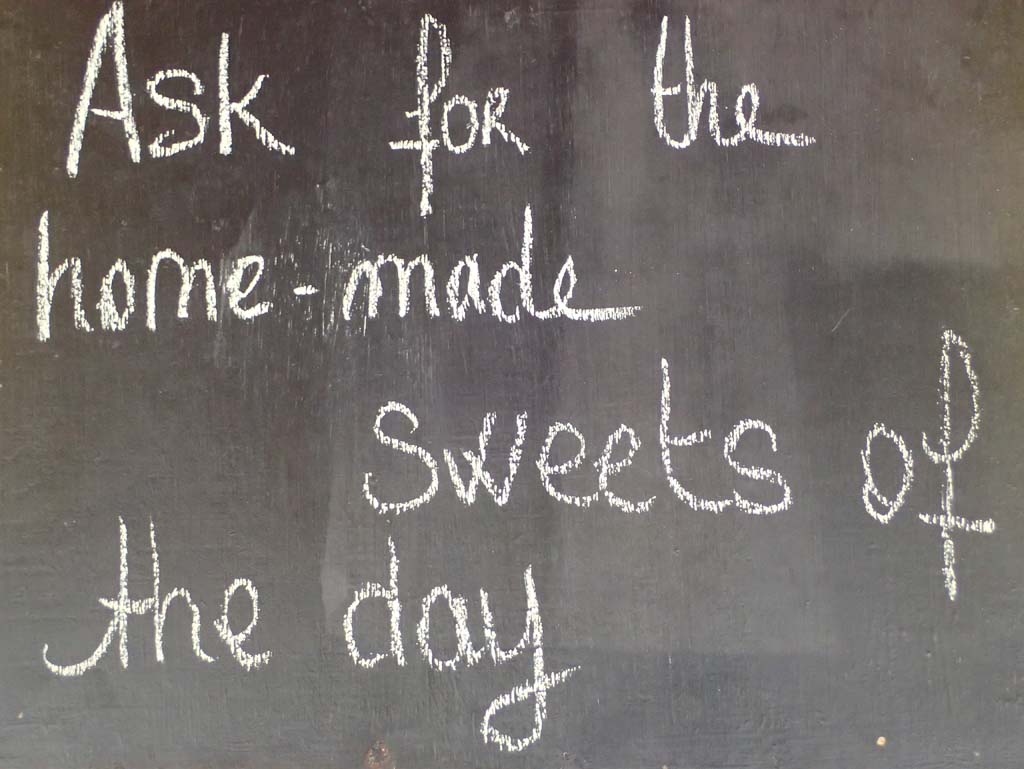 Ask for the
home-made
sweets of
the day